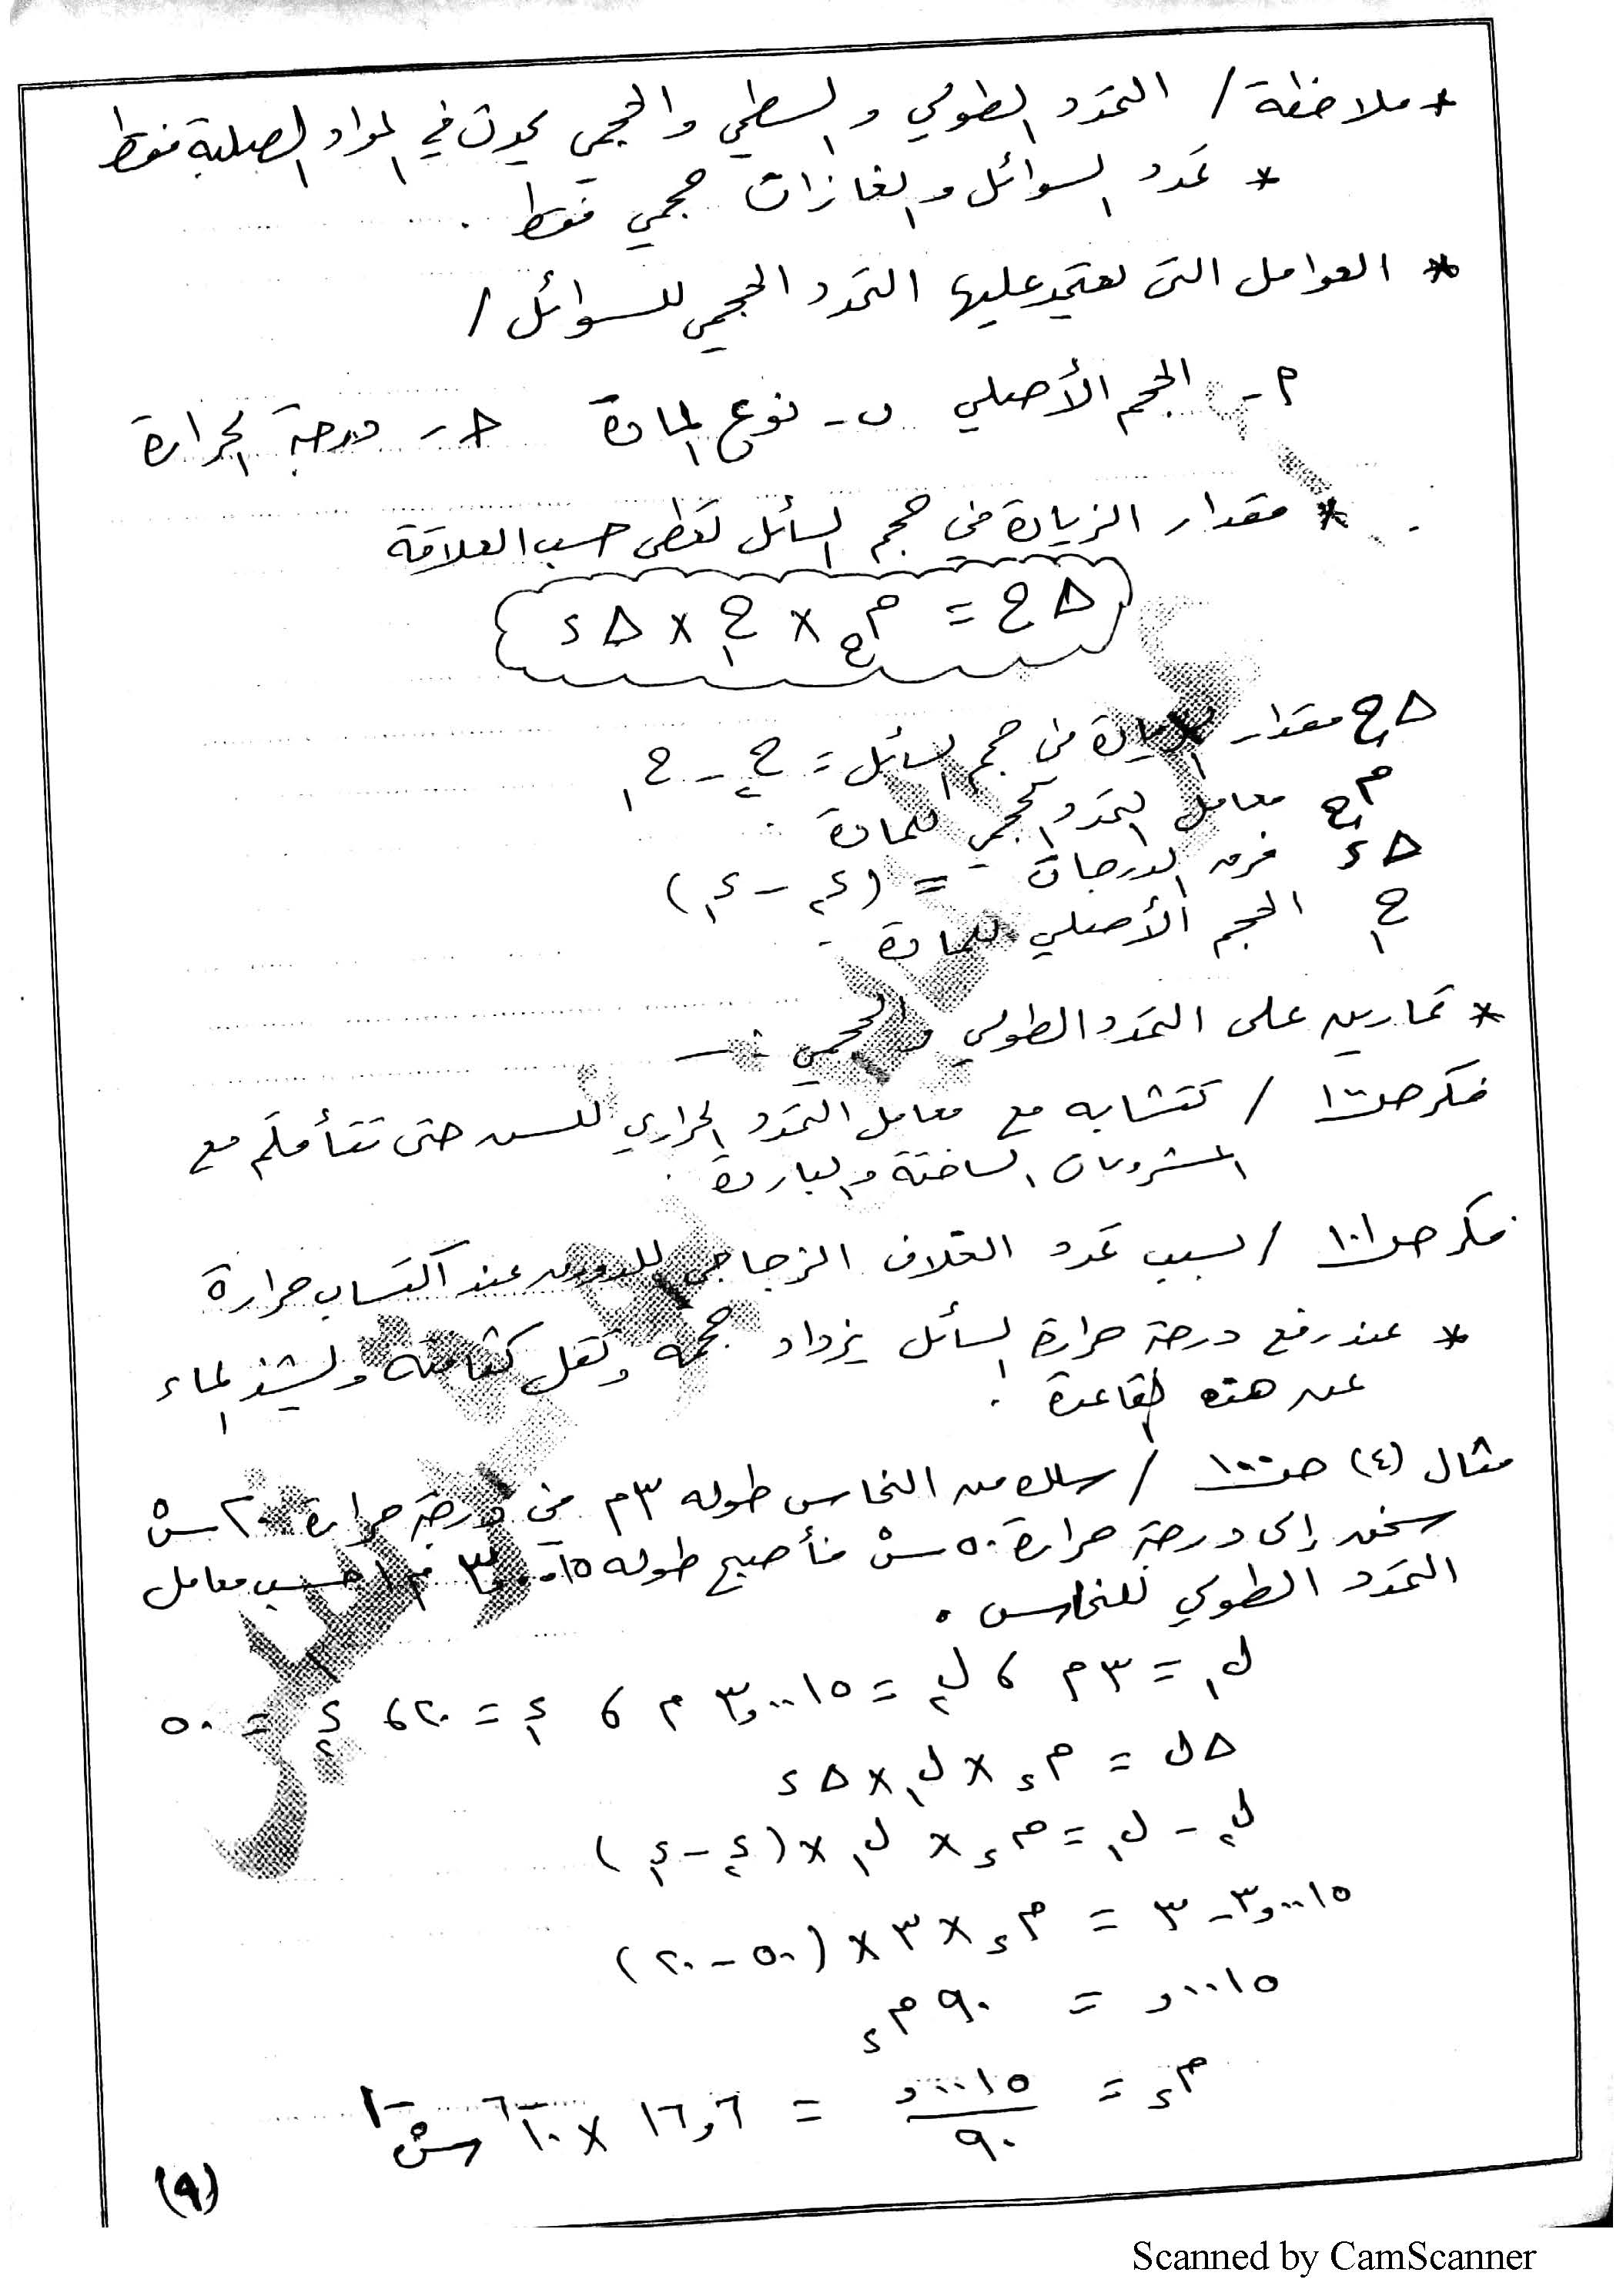 * ملاحظة / التمدد الطولي والسطحي والحجمي يحدث في المواد الصلبة فقط
* تمدد السوائل والغازات حجمي فقط .
* العوامل التي يعتمد عليها التمدد الحجمي للسوائل /
م- الحجم الأصلي ب- نوع المادة ح- درجة الحرارة
* مقدار الزيادة في حجم السائل تعطى حسب العلاقة
Δح = م ح × ح١ × Δ د
Δح مقدار الزيادة في حجم السائل = ح٢ - ح١
م ح معامل التمدد الحجمي للمادة .
Δ د فرق الدرجات = (د٢ - د١)
ح١ الحجم الأصلي للمادة .
* تمارين على التمدد الطولي والحجمي :-
فكر صـ١٠٠ / تتشابه مع معامل التمدد الحراري للسن حتى تتأقلم مع
المشروبات الساخنة والباردة .
فكر صـ١٠١ / بسبب تمدد الغلاف الزجاجي للدورق عند اكتساب حرارة
* عند رفع درجة حرارة السائل يزداد حجمه وتقل كثافته ويشذ الماء
عن هذه القاعدة .
مثال (٤) صـ١٠٠ / سلك من النحاس طوله ٣م في درجة حرارة ٢٠ سْ
سخن إلى درجة حرارة ٥٠ سْ فأصبح طوله ٣,٠٠١٥ م احسب معامل
التمدد الطولي للنحاس .
ل١ = ٣م ، ل٢ = ٣,٠٠١٥ م ، د١ = ٢٠ ، د٢ = ٥٠
Δل = م د × ل١ × Δ د
ل٢ - ل١ = م د × ل١ × (د٢ - د١)
٣,٠٠١٥ - ٣ = م د × ٣ × (٥٠ - ٢٠)
,٠٠١٥ = ٩٠ م د
م د = ,٠٠١٥ / ٩٠ = ١٦,٦ × ١٠^-٦ سْ^-١
(٩)
Scanned by CamScanner